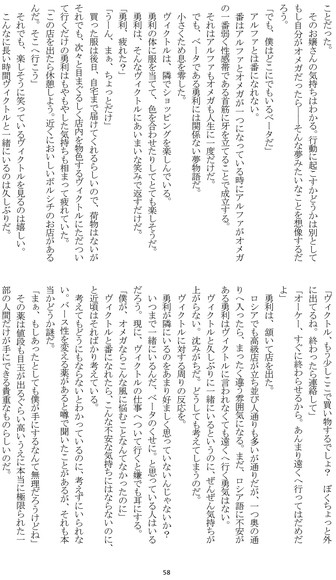 こだった。
そのお嬢さんの気持ちはわかる。行動に起こすかどうかは別として
もし自分がオメガだったら――そんな夢みたいなことを想像するだ
ろう。
「でも、僕はどこにでもいるベータだ」
アルファとは番にはなれない。
番はアルファとオメガが一つになっている時にアルファがオメガ
の一番弱く性感帯である首筋に牙を立てることで成立する。
それはアルファもオメガも人生に一度だけだ。
でも、ベータである勇利には関係ない夢物語だ。
小さくため息を零した。
ヴィクトルは、隣でショッピングを楽しんでいる。
勇利の体に服を当てて、色を合わせたりしてとても楽しそうだ。
勇利は、そんなヴィクトルにあいまいな笑みで返すだけだ。
「勇利、疲れた？」
「うーん、まぁ、ちょっとだけ」
買った服は後日、自宅まで届けてくれるらしいので、荷物はないが
それでも、次々と目まぐるしく店内を物色するヴィクトルにただつい
て行くだけの勇利はもやもやした気持ちも相まって疲れていた。
「この店を出たら休憩しよう。近くにおいしいボルシチのお店がある
んだ。そこへ行こう」
それでも、楽しそうに笑っているヴィクトルを見るのは嬉しい。
こんなに長い時間ヴィクトルと一緒にいるのは久しぶりだ。
「ヴィクトル、もう少しここで買い物するでしょ？　ぼくちょっと外
に出てるね。終わったら連絡して」
「オーケー、すぐに終わらせるから。あんまり遠くへ行ってはだめだ
よ」
勇利は、頷いて店を出た。
ロシアでも高級店が立ち並び人通りも多い通りだが、一つ奥の通
りへ入ったら、まったく違う雰囲気になる。まだ、ロシア語に不安が
ある勇利はヴィクトルに言われなくても遠くへ行く勇気はない。
ヴィクトルと久しぶりに一緒にいるというのに、ぜんぜん気持ちが
上がらない。沈みがちだ。どうしても考えてしまうのだ。
ヴィクトルに対する周りの反応を。
勇利が隣にいるのをあまり好ましく思っていないんじゃないか？
いつまで一緒にいるんだ。ベータのくせに。と思っている人はいる
だろう。現に、ヴィクトルの仕事へついて行くと嫌でも耳にする。
「僕が、オメガならこんな風に悩むことなんてなかったのに」
ヴィクトルと番になれたら、こんな不安な気持ちにはならないのに、
と近頃はそればかり考えている。
考えてもどうにもならないとわかっているのに、考えずにいられな
い。バース性を変える薬があると噂で聞いたことがあるが、それも本
当かどうか謎だ。
「まぁ、もしあったとしても僕が手にするなんて無理だろうけどね」
その薬は値段も目玉が出るぐらい高いうえに本当に極限られた一
部の人間だけが手にできる貴重なものらしいのだ。
58